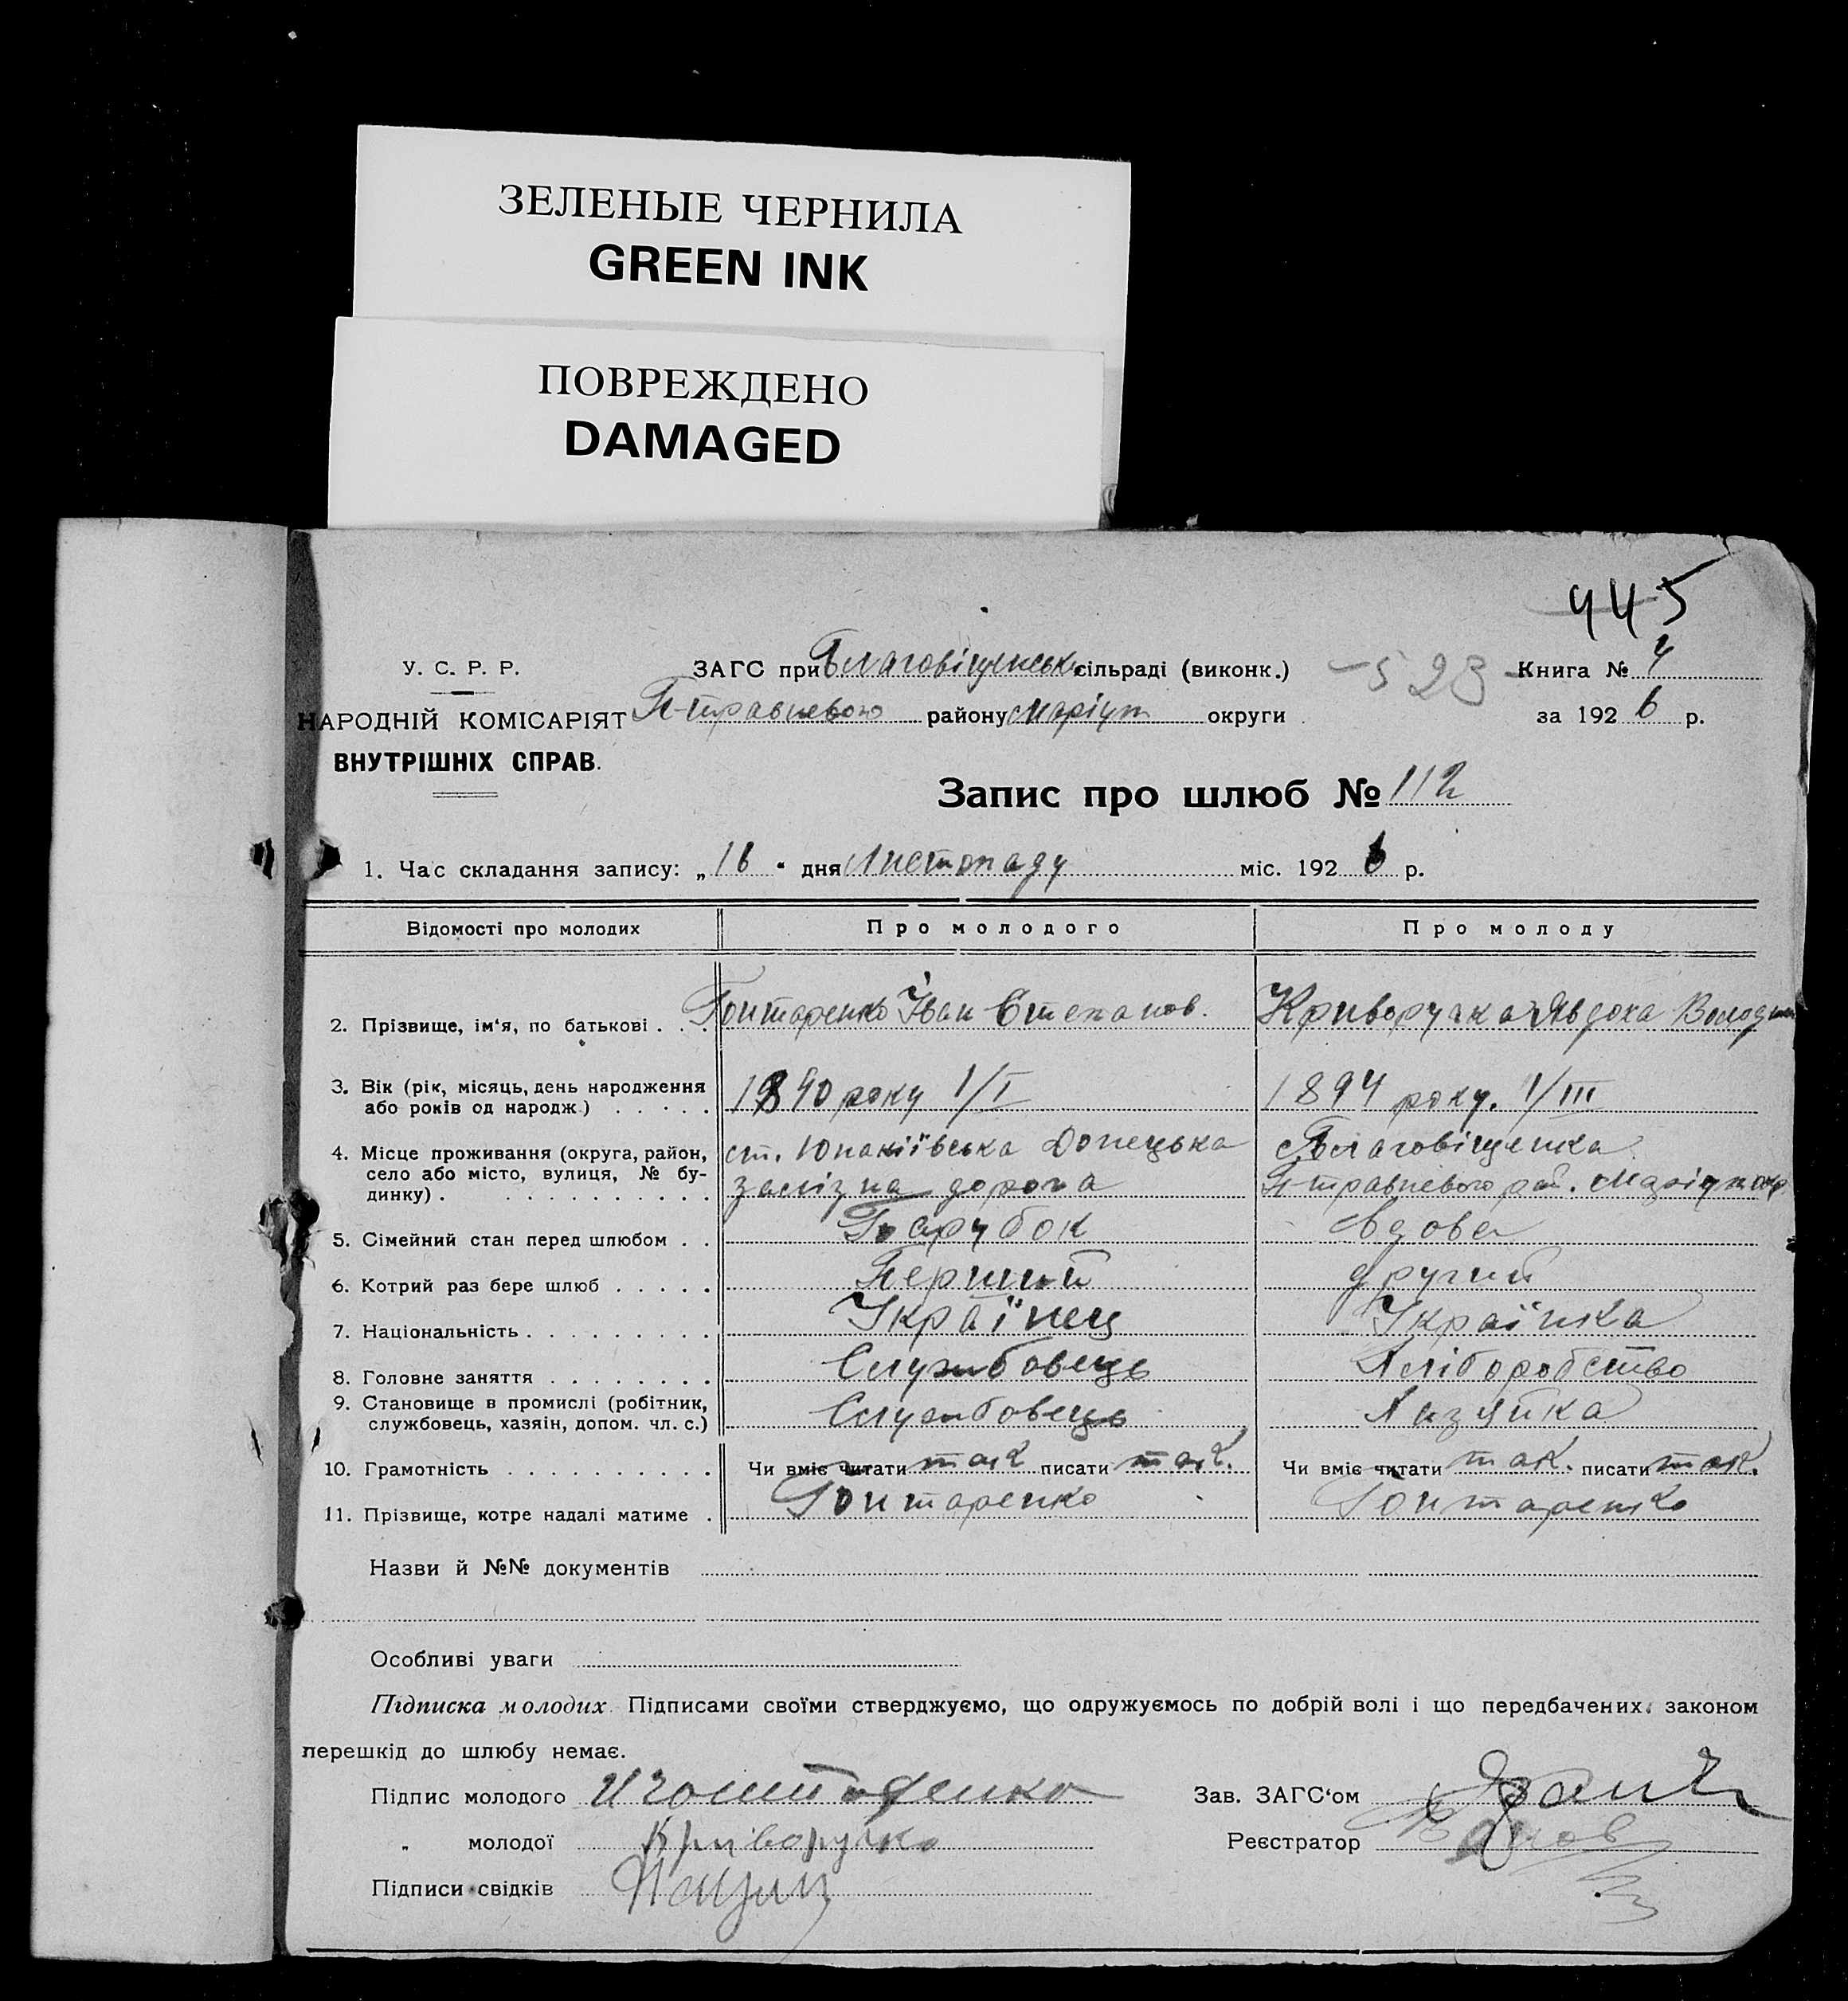 ЗЕЛЕНЫЕ ЧЕРНИЛА
GREEN INK
ПОВРЕЖДЕНО
DAMAGED
445
У. С. Р. Р.
ЗАГС при Благовіщенськ. сільраді (виконк.) 523 Книга № 4
НАРОДНІЙ КОМІСАРІЯТ
П-травневого району Маріуп округи за 1926 р.
ВНУТРІШНІХ СПРАВ.
Запис про шлюб № 112
1. Час складання запису: „16“ дня Листопаду міс. 1926 р.
Відомості про молодих Про молодого Про молоду
2. Прізвище, ім‘я, по батькові . . . Гонтаренко Іван Степанов. Криворучка Явдоха Володим
3. Вік (рік, місяць, день народження 1890 року 1/I 1894 року. 1/III
або років од народж.) . . . . .
4. Місце проживання (округа, район, ст. Юнакіївська Донецька с. Благовіщенка
село або місто, вулиця, № бу- залізна дорога П-травневого рай. Маріуп окр
динку) . . . . . . . . . . .
5. Сімейний стан перед шлюбом . . Парубок Вдова
6. Котрий раз бере шлюб . . . . . Перший другий
7. Національність . . . . . . . . . Українец Українка
8. Головне заняття . . . . . . . . Службовець Хліборобство
9. Становище в промислі (робітник,
службовець, хазяін, допом. чл. с.) Службовець Хазяйка
10. Грамотність . . . . . . . . . . Чи вміє читати так писати так. Чи вміє читати так. писати так.
11. Прізвище, котре надалі матиме . Гонтаренко Гонтаренко
Назви й №№ документів
Особливі уваги
Підписка молодих Підписами своїми стверджуємо, що одружуємось по добрій волі і що передбачених законом
перешкід до шлюбу немає.
Підпис молодого И Гонтаренко Зав. ЗАГС‘ом
„ молодої Криворучко Реєстратор
Підписи свідків